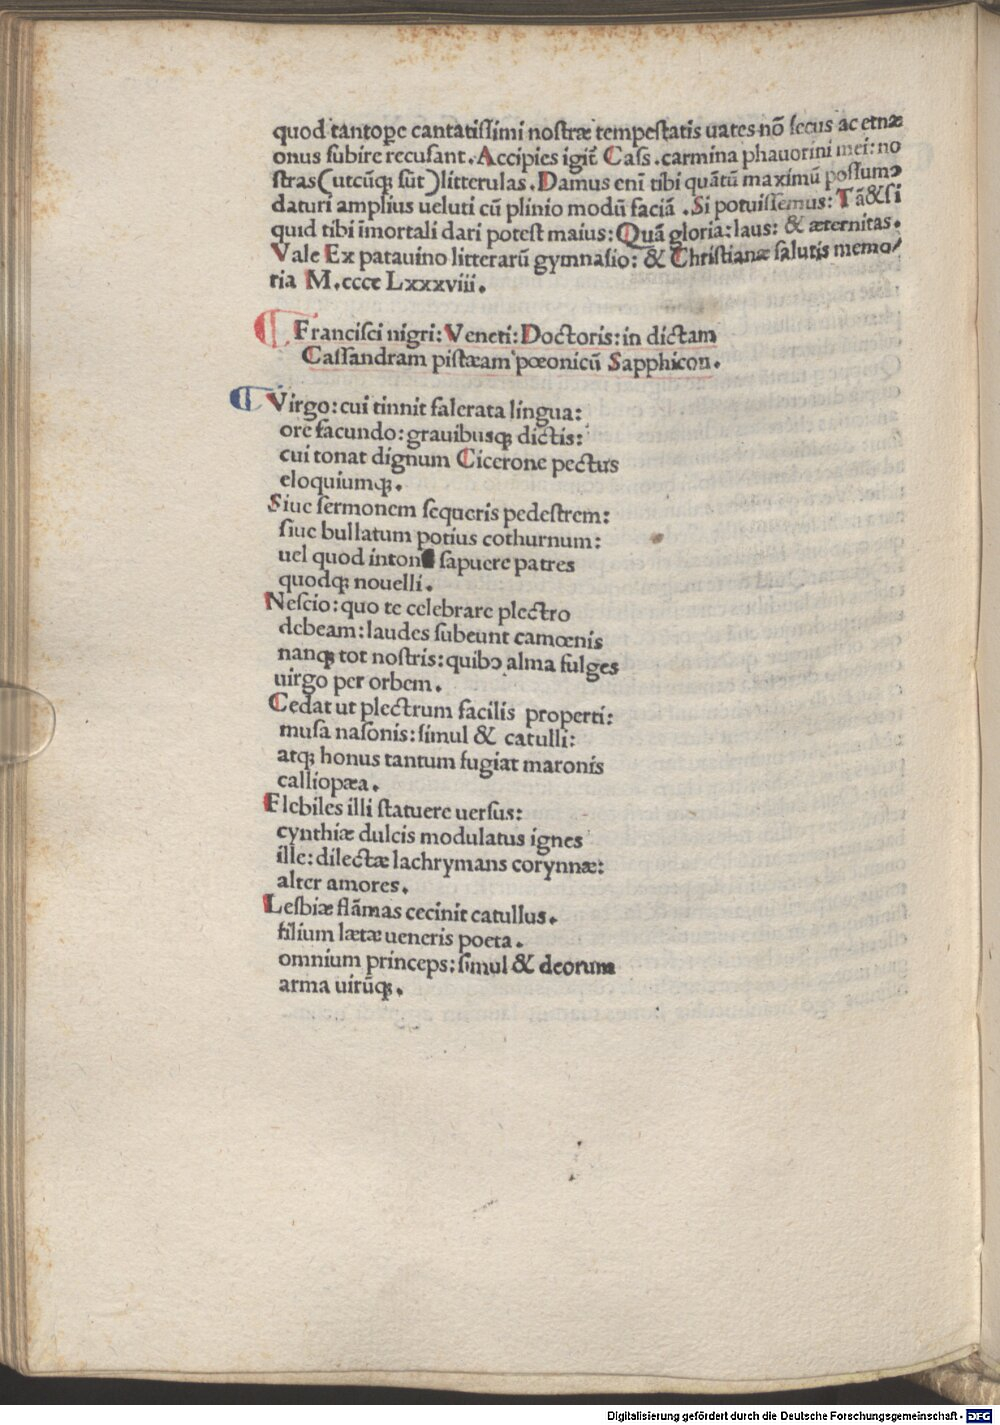 quod tantop̱e cantatiſſimi noſtræ tempeſtatis uates nõ ſecus ac etnæ
onus ſubire recuſant. Accipies igit̃ Caſs. carmina phauorini mei: no
ſtras (utcũq; ſũt) litterulas. Damus eni tibi quãtũ maximũ poſſumꝰ
daturi amplius ueluti cũ plinio modũ faciã. Si potuiſſemus: Tã & ſi
quid tibi ĩmortali dari poteſt maius: Quã gloria: laus: & æternitas.
Vale Ex patauino litterarũ gymnaſio: & Chriſtianæ ſalutis memo/
ria M.cccc Lxxxviii.
Franciſci nigri: Veneti: Doctoris: in dictam
Caſſandram piſtæam pœonicũ Sapphicon.
Virgo: cui tinnit falerata lingua:
ore facundo: grauibusq; dictis:
cui tonat dignum Cicerone pectus
eloquiumq;.
Siue ſermonem ſequeris pedeſtrem:
ſiue bullatum potius cothurnum:
uel quod inton ſapuere patres
quodq; nouelli.
Neſcio: quo te celebrare plectro
debeam: laudes ſubeunt camœnis
nanq; tot noſtris: quibꝰ alma fulges
uirgo per orbem.
Cedat ut plectrum facilis properti:
muſa naſonis: ſimul & catulli:
atq; honus tantum fugiat maronis
calliopæa.
Flebiles illi ſtatuere uerſus:
cynthiæ dulcis modulatus ignes
ille: dilectæ lachrymans corynnæ:
alter amores.
Leſbiæ flãmas cecinit catullus.
filium lætæ ueneris poeta.
omnium princeps: ſimul & deorum
arma uirũq;.
Digitalisierung gefördert durch die Deutsche Forschungsgemeinschaft - DFG